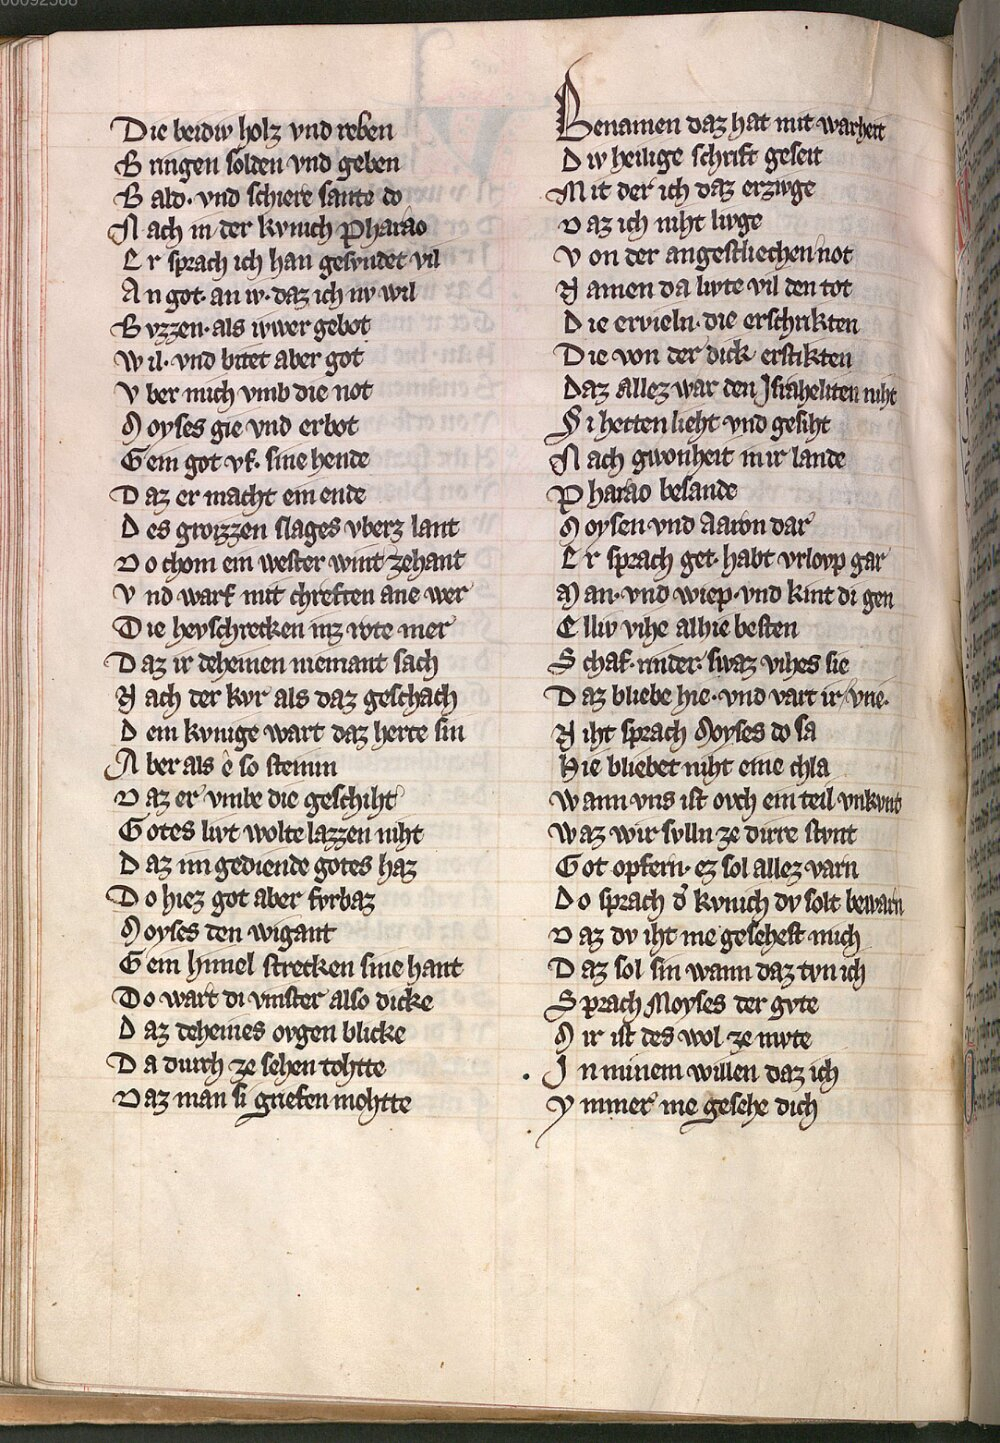 Die beidiv holz vnd reben
Bringen solden vnd geben
Bald· vnd schiere sante do
Nach in der kvnich Pharao
Er sprach ich han gesvndet vil
An got· an iv· daz ich nv wil
Bvzzen· als iwer gebot
Wil· vnd bitet aber got
Vber mich vmb die not
Moyses gie vnd erbot
Gein got vf· sine hende
Daz er macht ein ende
Des groizzen slages vberz lant
Do chom ein wester wint zehant
Vnd warf mit chreften ane wer
Die hevschrecken inz rote mer
Daz ir deheinen niemant sach
Nach der kvr als daz geschach
Dem kvnige wart daz herce sin
Aber als ê so steinin
Daz er vmbe die geschiht
Gotes livt wolte lazzen niht
Daz im gediende gotes haz
Do hiez got aber fvrbaz
Moyses den wigant
Gein himel strecken sine hant
Do wart di vinster also dicke
Daz deheines ovgen blicke
Da durch ze sehen tohtte
Daz man si griefen mohtte
Benamen daz hat mit warheit
Div heilige schrift geseit
Mit der ich daz erzivge
Daz ich niht livge
Von der angestliechen not
Namen da livte vil den tot
Die ervieln· die erschrikten
Die von der dick erstikten
Daz allez war den Israheliten niht
Si hetten lieht vnd gesiht
Nach gwonheit in ir lande
Pharao besande
Moysen vnd Aaron dar
Er sprach get· habt vrlovp gar
Man· vnd wiep· vnd kint di gen
Elliv vihe alhie besten
Schaf· rinder· swaz vihes sie
Daz bliebe hie· vnd vart ir vrie·
Niht sprach Moyses do sa
Hie bliebet niht eine chla
Wann vns ist ovch ein teil vnkvnt
Waz wir svlln ze dirre stvnt
Got opfern· ez sol allez varn
Do sprach d̾ kvnich dv solt bewarn
Daz dv iht me gesehest mich
Daz sol sin wann daz tvn ich
Sprach Moyses der gvte
Mir ist des wol ze mvte
In minem willen daz ich
Ymmer me gesehe dich